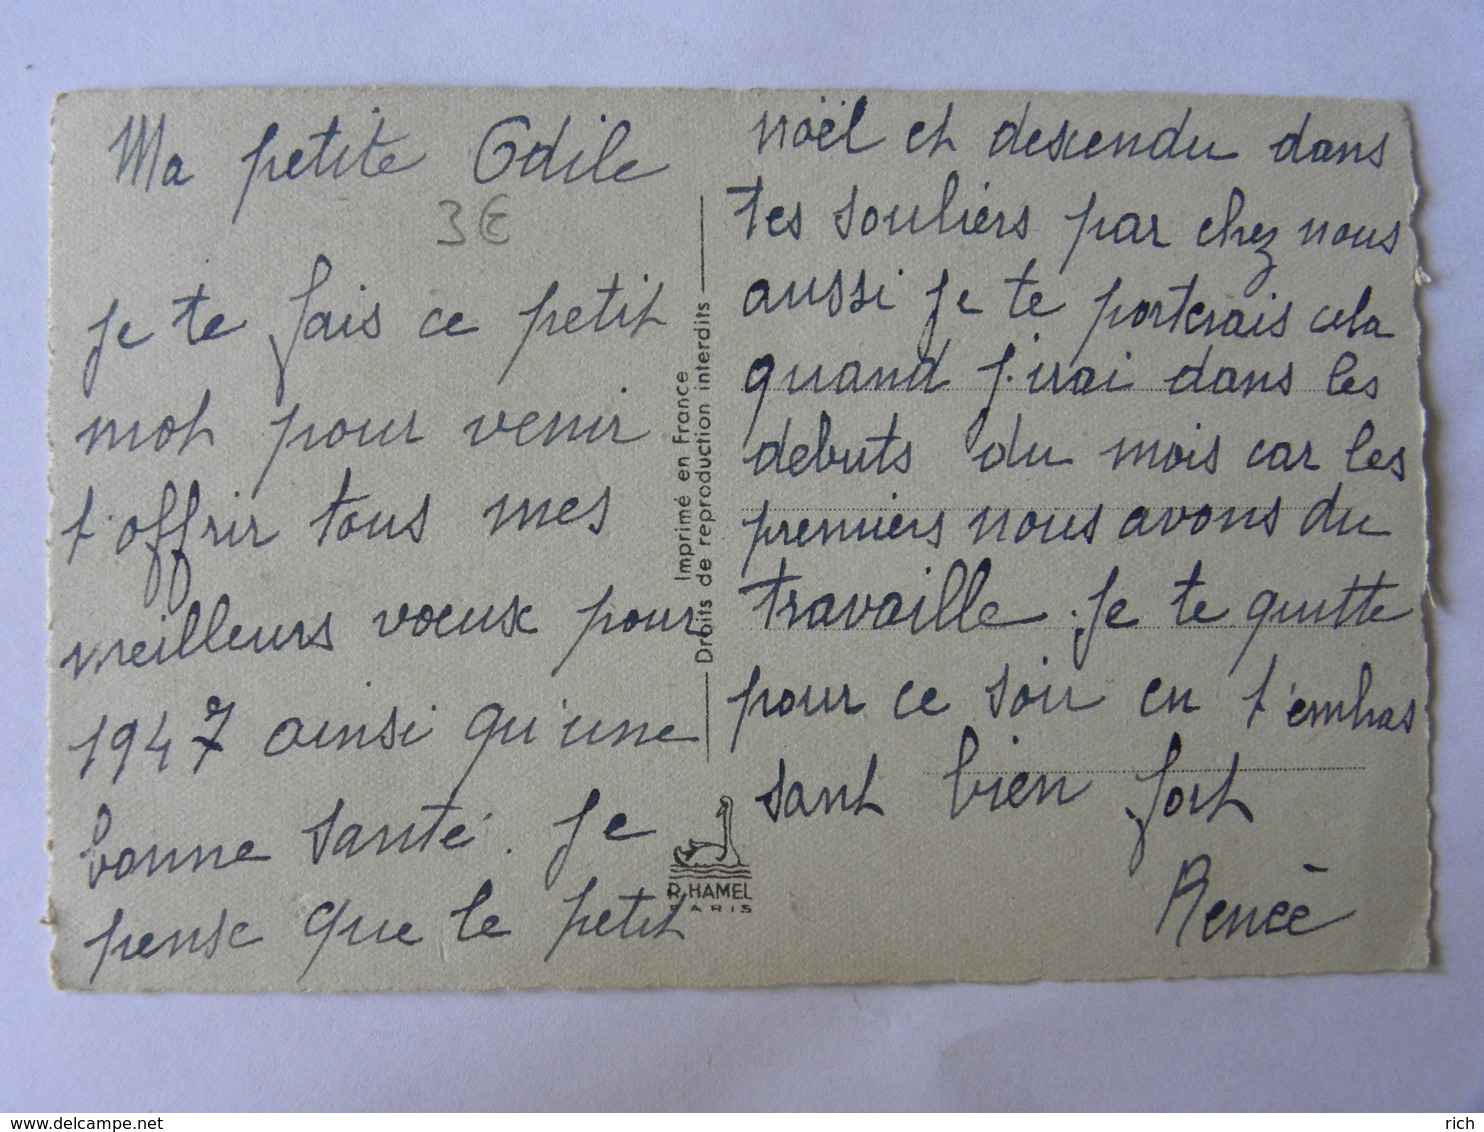 Ma petite Odile
3€
Je te fais ce petit
mot pour venir
t'offrir tous mes
meilleurs vœux pour
1947 ainsi qu'une
bonne santé. Je
pense que le petit
Imprimé en France
Droits de reproduction interdits
R. HAMEL
PARIS
noël et descendu dans
tes souliers par chez nous
aussi je te porterais cela
quand j'irai dans les
debuts du mois car les
premiers nous avons du
travaille. Je te quitte
pour ce soir en t'embras
sant bien fort
Renée
www.delcampe.net
rich